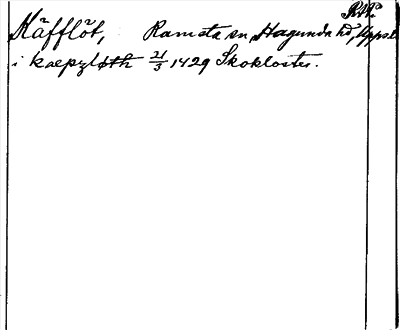 Käfflöt, Ramsta sn, Hagunda hd, Uppsala
i kaepzløth 21/3 1429 Skokloster.